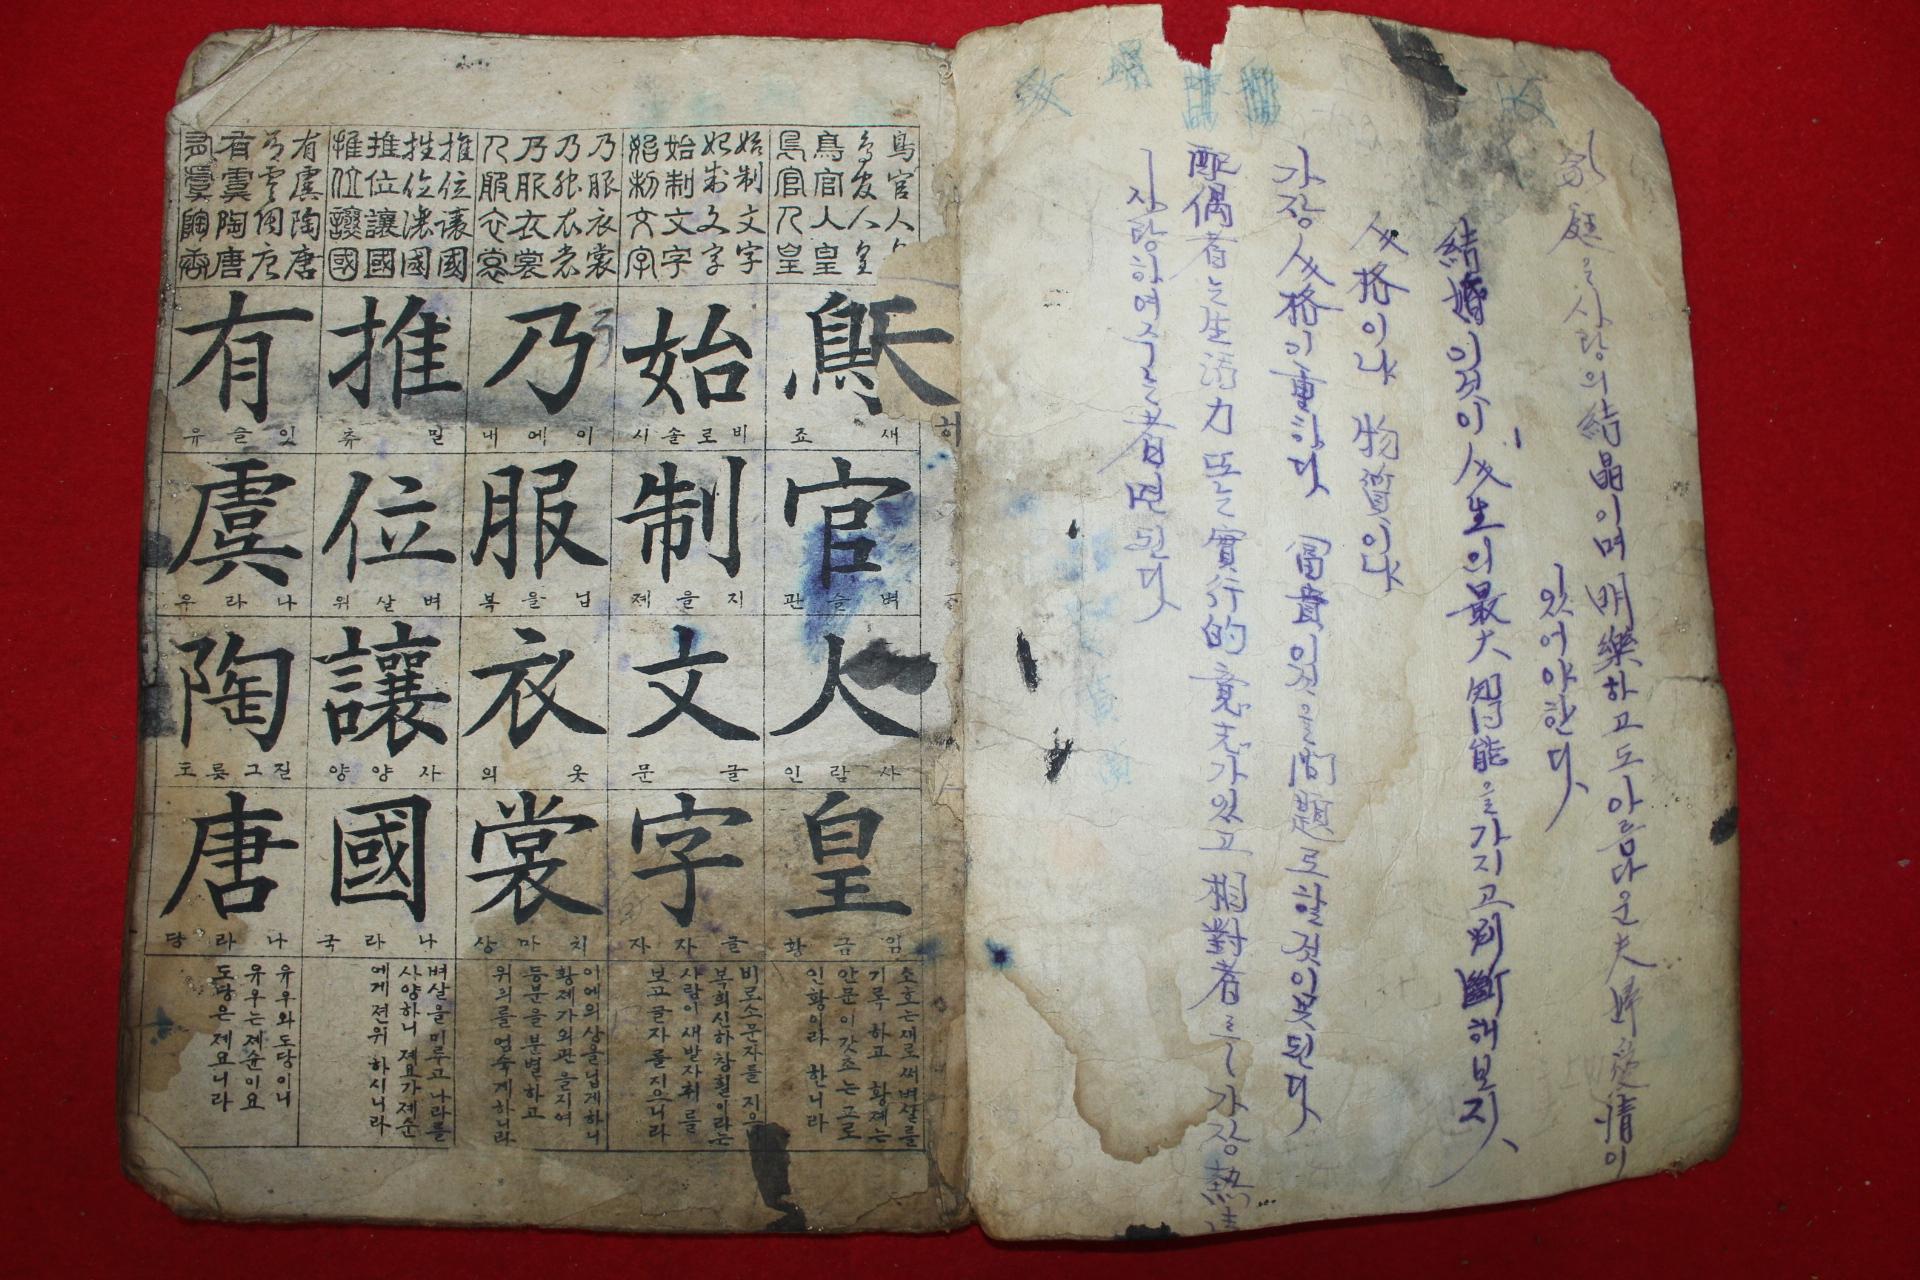 家庭을 사랑의 結晶이며 明樂하고도 아름다운 夫婦愛情이
있어야한다.
結婚이것이 人生의 最大 智能을 가지고 判斷해보자.
人格이냐 物質이냐
가장 人格이 重하다. 富貴이것을 問題로 할것이 못된다.
配偶者는 生活力 또는 實行的 意志가있고 相對者를 가장 熱
사랑하여주는 者면 된다.
鳥官人
鳥官人皇
鳥官人皇
始制文字
始制文字
始制文字
始制文字
乃服衣裳
乃服衣裳
乃服衣裳
乃服衣裳
推位讓國
推位讓國
推位讓國
推位讓國
有虞陶唐
有虞陶唐
有虞陶唐
有虞陶唐
鳥 새 죠
官 벼슬 관
人 사람 인
皇 임금 황
始 비로솔 시
制 지을 제
文 글 문
字 글자 자
乃 이에 내
服 닙을 복
衣 옷 의
裳 치마 상
推 밀 츄
位 벼살 위
讓 사양 양
國 나라 국
有 잇슬 유
虞 나라 우
陶 질그릇 도
唐 나라 당
소호는새로써벼살를
기록하고 황졔는
안문이갓초는고로
인황이라 한니라
비로소문자를 지은
복희신하창힐이라는
사람이새발자취를
보고글자를지으니라
이에의상을닙게하니
황졔가의관을지여
등분을분별하고
위의를엄숙게하니라
벼살을미루고나라를
사양하니 졔요가졔순
에게젼위 하시니라
유우와도당이니
유우는졔순이요
도당은졔요니라